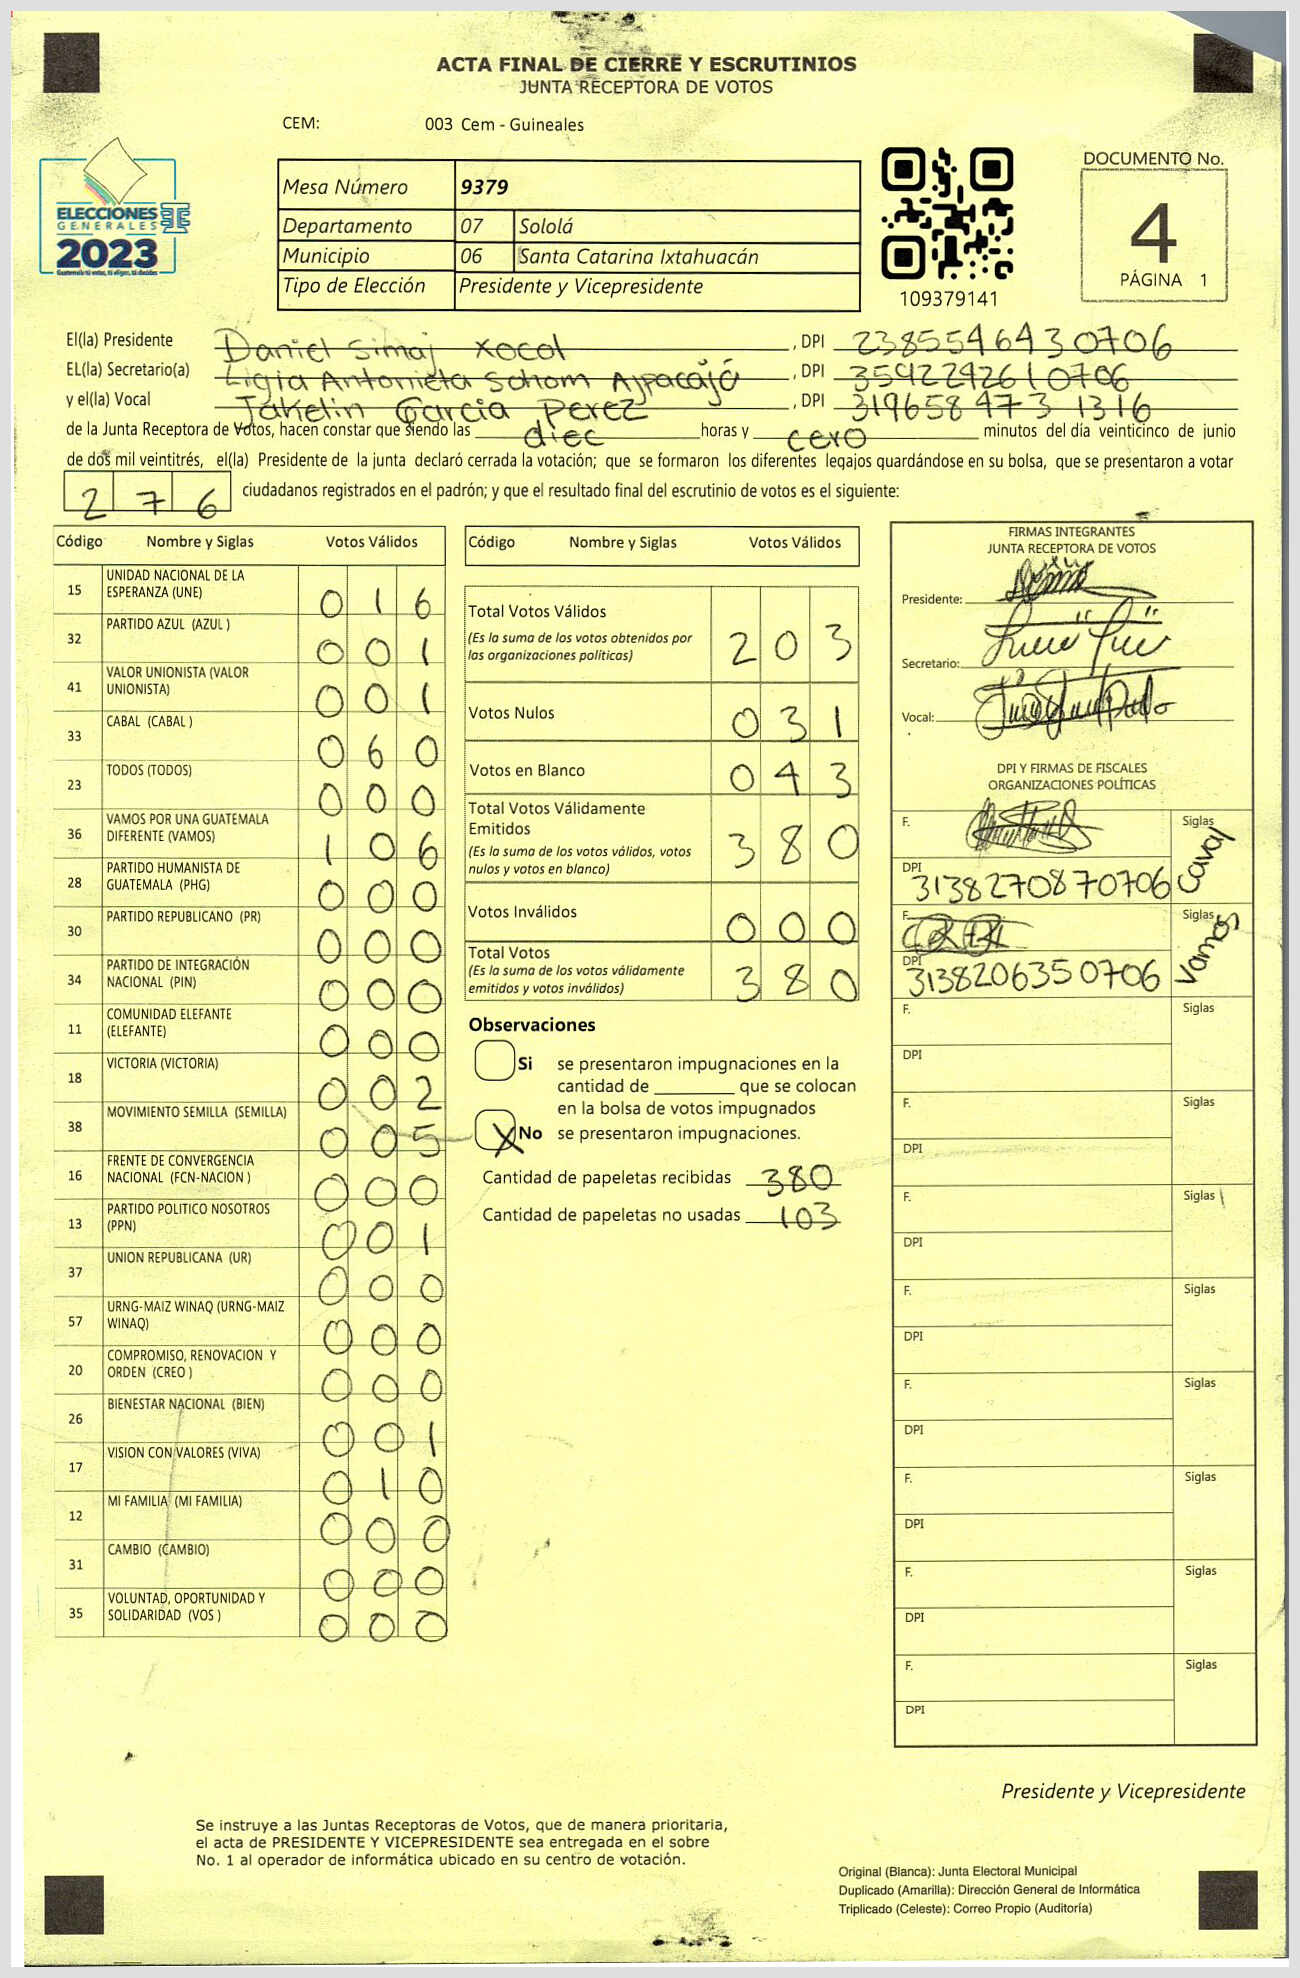 ACTA FINAL DE CIERRE Y ESCRUTINIOS
JUNTA RECEPTORA DE VOTOS
CEM: 003 Cem - Guineales
ELECCIONES
GENERALES
2023
Guatemala tú votas, tú eliges, tú decides
Mesa Número 9379
Departamento 07 Sololá
Municipio 06 Santa Catarina Ixtahuacán
Tipo de Elección Presidente y Vicepresidente
109379141
DOCUMENTO No.
4
PÁGINA 1
El(la) Presidente Daniel Simaj Xocol , DPI 2385546430706
EL(la) Secretario(a) Ligia Antonieta Schom Ajpacajá , DPI 3592292610706
y el(la) Vocal Jakelin Garcia Perez , DPI 3196584731316
de la Junta Receptora de Votos, hacen constar que siendo las diec horas y cero minutos del día veinticinco de junio
de dos mil veintitrés, el(la) Presidente de la junta declaró cerrada la votación; que se formaron los diferentes legajos guardándose en su bolsa, que se presentaron a votar
276 ciudadanos registrados en el padrón; y que el resultado final del escrutinio de votos es el siguiente:
Código Nombre y Siglas Votos Válidos
15 UNIDAD NACIONAL DE LA ESPERANZA (UNE) 016
32 PARTIDO AZUL (AZUL ) 001
41 VALOR UNIONISTA (VALOR UNIONISTA) 001
33 CABAL (CABAL ) 060
23 TODOS (TODOS) 000
36 VAMOS POR UNA GUATEMALA DIFERENTE (VAMOS) 106
28 PARTIDO HUMANISTA DE GUATEMALA (PHG) 000
30 PARTIDO REPUBLICANO (PR) 000
34 PARTIDO DE INTEGRACIÓN NACIONAL (PIN) 000
11 COMUNIDAD ELEFANTE (ELEFANTE) 000
18 VICTORIA (VICTORIA) 002
38 MOVIMIENTO SEMILLA (SEMILLA) 005
16 FRENTE DE CONVERGENCIA NACIONAL (FCN-NACION ) 000
13 PARTIDO POLITICO NOSOTROS (PPN) 001
37 UNION REPUBLICANA (UR) 000
57 URNG-MAIZ WINAQ (URNG-MAIZ WINAQ) 000
20 COMPROMISO, RENOVACION Y ORDEN (CREO ) 000
26 BIENESTAR NACIONAL (BIEN) 001
17 VISION CON VALORES (VIVA) 010
12 MI FAMILIA (MI FAMILIA) 000
31 CAMBIO (CAMBIO) 000
35 VOLUNTAD, OPORTUNIDAD Y SOLIDARIDAD (VOS ) 000
Código Nombre y Siglas Votos Válidos
Total Votos Válidos 203
(Es la suma de los votos obtenidos por
las organizaciones políticas)
Votos Nulos 031
Votos en Blanco 043
Total Votos Válidamente
Emitidos 380
(Es la suma de los votos válidos, votos
nulos y votos en blanco)
Votos Inválidos 000
Total Votos 380
(Es la suma de los votos válidamente
emitidos y votos inválidos)
Observaciones
Si se presentaron impugnaciones en la
cantidad de ________ que se colocan
en la bolsa de votos impugnados
X No se presentaron impugnaciones.
Cantidad de papeletas recibidas 380
Cantidad de papeletas no usadas 103
FIRMAS INTEGRANTES
JUNTA RECEPTORA DE VOTOS
Presidente:
Secretario:
Vocal:
DPI Y FIRMAS DE FISCALES
ORGANIZACIONES POLÍTICAS
F. Siglas Caval
DPI 3138270870706
F. Siglas Vamos
DPI 3138206350706
F. Siglas
DPI
F. Siglas
DPI
F. Siglas
DPI
F. Siglas
DPI
F. Siglas
DPI
F. Siglas
DPI
F. Siglas
DPI
F. Siglas
DPI
Presidente y Vicepresidente
Se instruye a las Juntas Receptoras de Votos, que de manera prioritaria,
el acta de PRESIDENTE Y VICEPRESIDENTE sea entregada en el sobre
No. 1 al operador de informática ubicado en su centro de votación.
Original (Blanca): Junta Electoral Municipal
Duplicado (Amarilla): Dirección General de Informática
Triplicado (Celeste): Correo Propio (Auditoría)